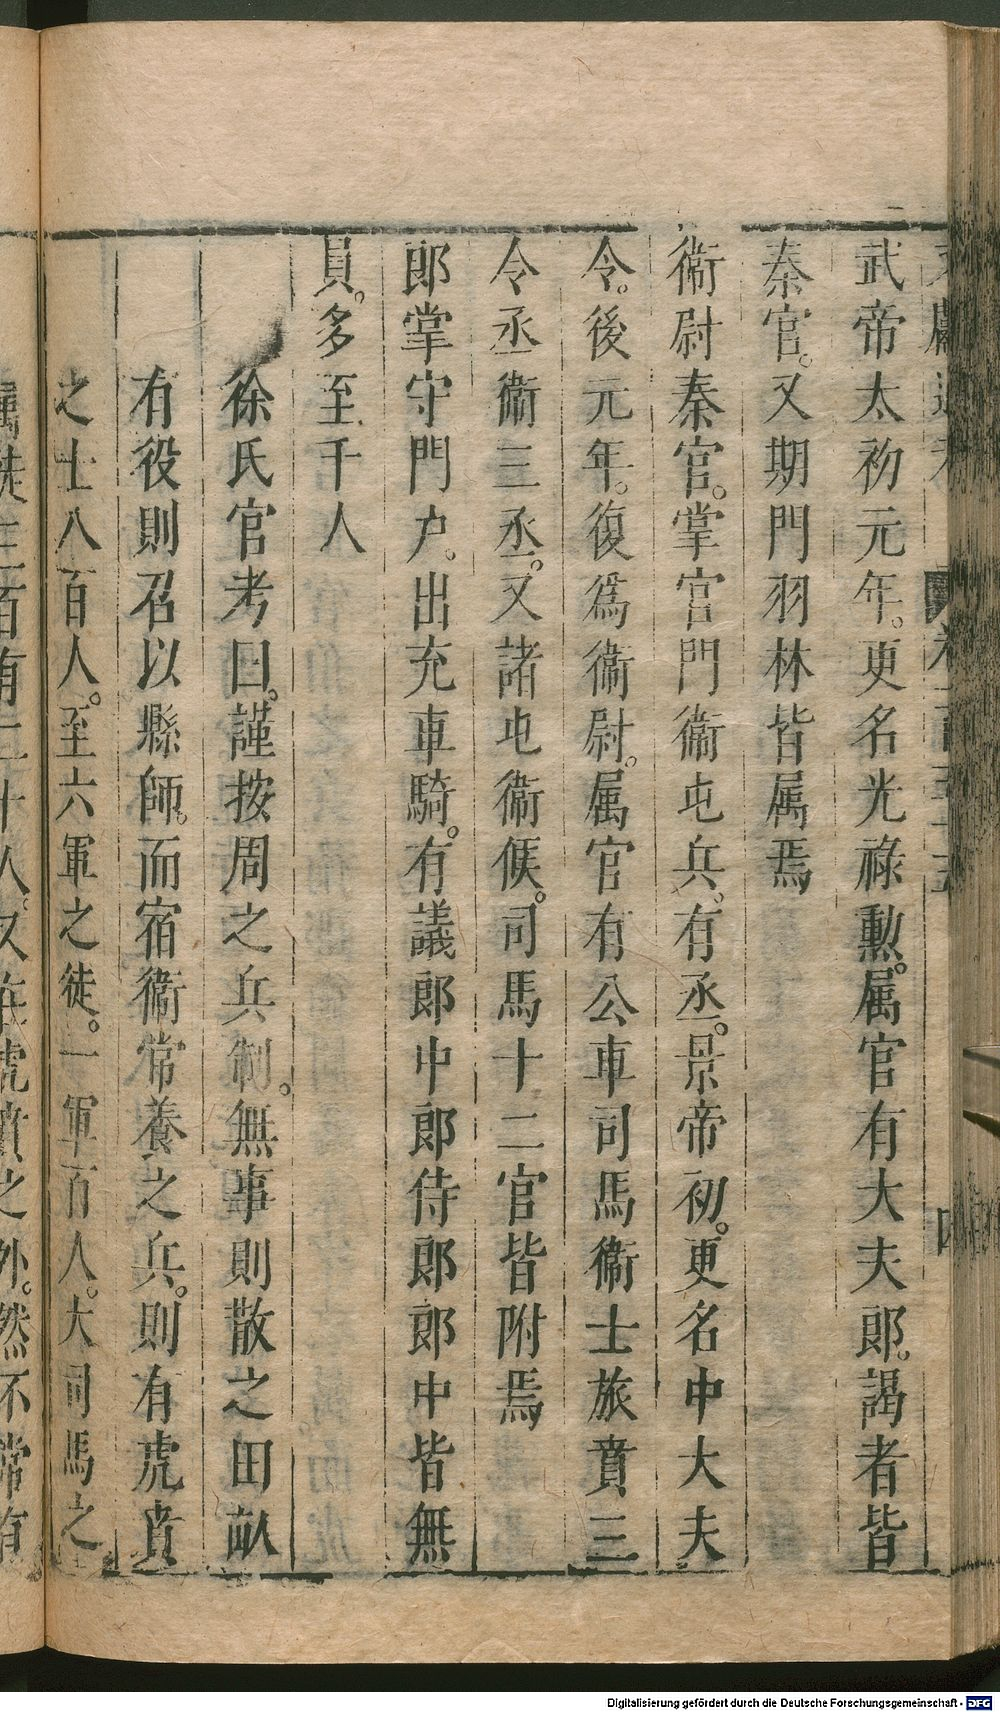 文獻通考 卷一百五十五 四
武帝太初元年。更名光祿勲。属官有大夫郎。謁者皆
秦官。又期門羽林皆属焉
衞尉秦官。掌宫門衞屯兵。有丞。景帝初。更名中大夫
令。後元年。復爲衞尉。属官有公車司馬衞士旅賁三
令丞衞三丞。又諸屯衞候。司馬十二官皆附焉
郎掌守門户。出充車騎。有議郎中郎侍郎郎中皆無
員。多至千人
徐氏官考曰。謹按周之兵制。無事則散之田畝
有役則召以縣師。而宿衞常養之兵。則有虎賁
之士八百人。至六軍之徒。一軍百人。大司馬之
属徒三百有二十人。又在虎賁之外。然不常有
Digitalisierung gefördert durch die Deutsche Forschungsgemeinschaft - DFG